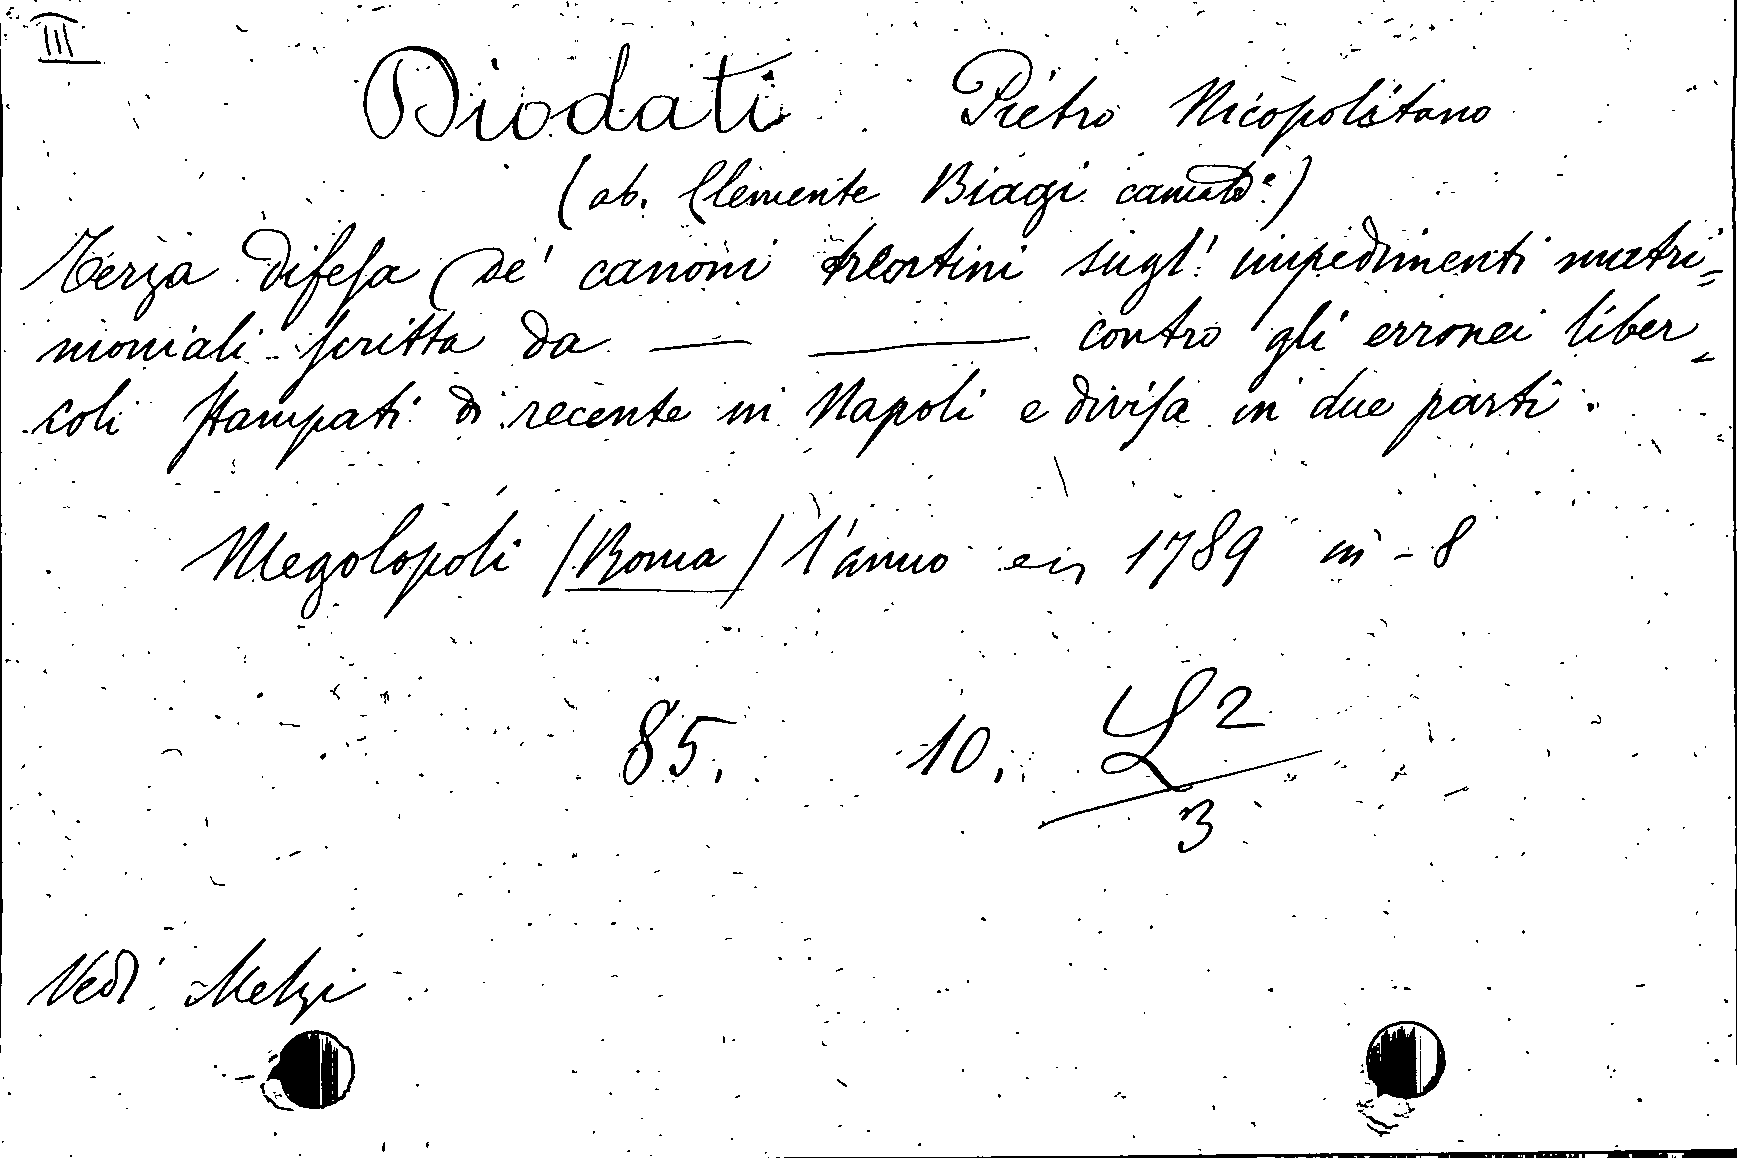 III
Diodati Pietro Nicopolitano
(ab. Clemente Biagi camald.e)
Terza difesa de' canoni trentini sugl' impedimenti matri=
moniali scritta da — — contro gli erronei liber=
coli stampati di recente in Napoli e divisa in due parti.
Megolopoli (Roma) l'anno 1789 in-8
85. 10. L 2
3
Vedi Melzi